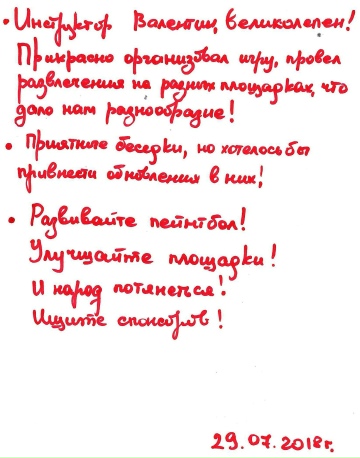 • Инструктор Валентин, великолепен!
Прикрасно организовал игру, провел
развлечения на разных площадках, что
дало нам разнообразие!
• Приятные беседки, но хотелось бы
привнести обновления в них!
• Развивайте пейнтбол!
Улучшайте площадки!
И народ потянеться!
Ищите спонсоров!
29.07.2018г.